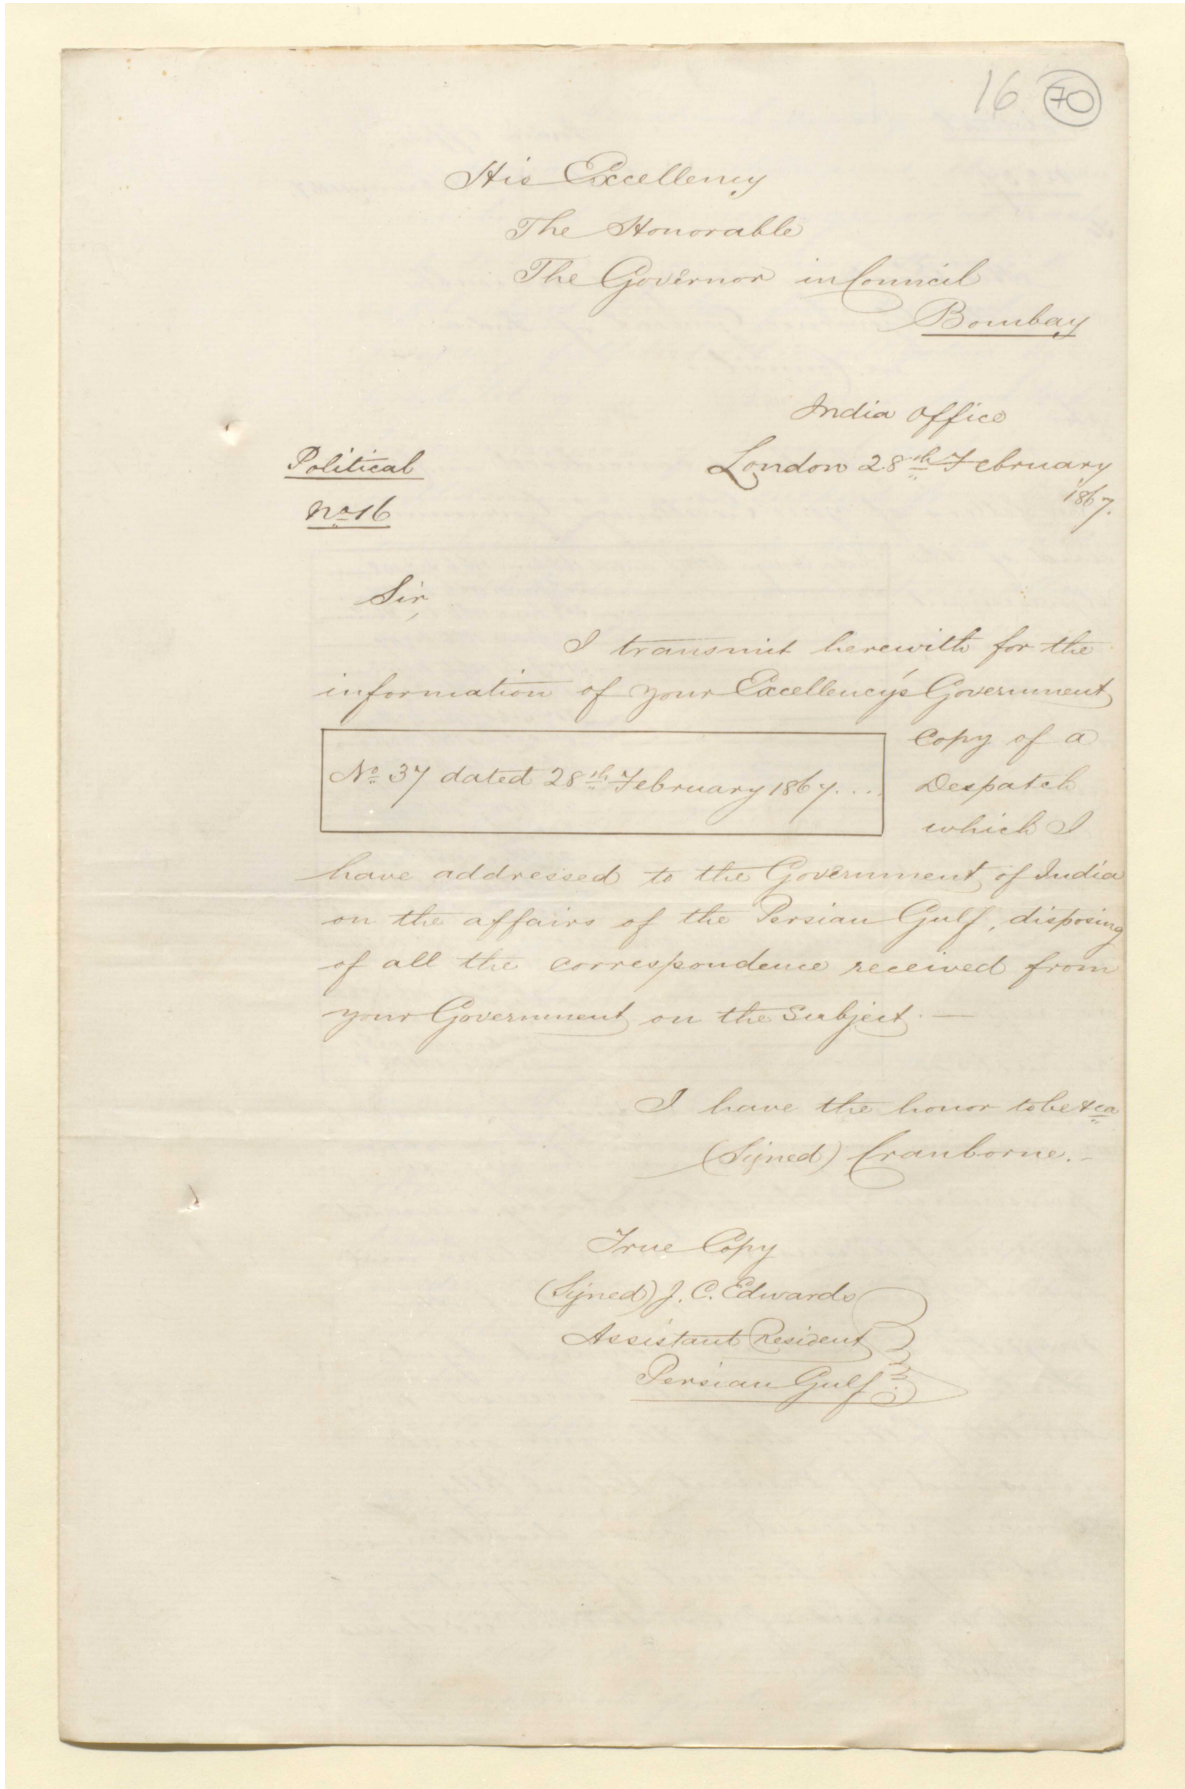 16 70
His Excellency
The Honorable
The Governor in Council
Bombay
India Office
London 28th February
1867.
Political
No 16
Sir,
I transmit herewith for the
information of your Excellency's Government
copy of a
No 37 dated 28th February 1867....
Despatch
which I
have addressed to the Government of India
on the affairs of the Persian Gulf, disposing
of all the correspondence received from
your Government on the Subject. —
I have the honor to be &ca
(Signed) Cranborne. -
True Copy
(Signed) J. C. Edwards
Assistant Resident
Persian Gulf